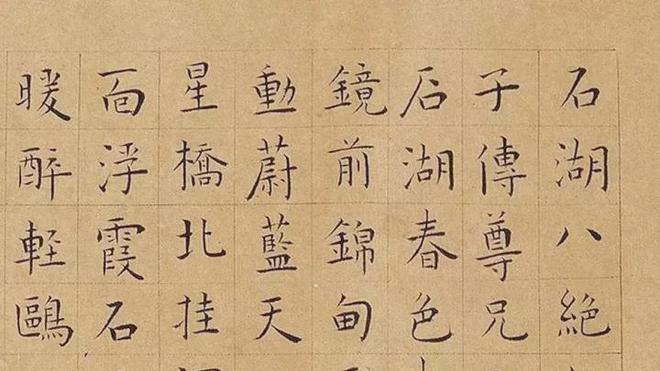 石湖八絶
子傳尊兄
石湖春色
鏡前錦甸
動蔚藍天
星橋北挂
面浮霞石
暖醉輕鷗